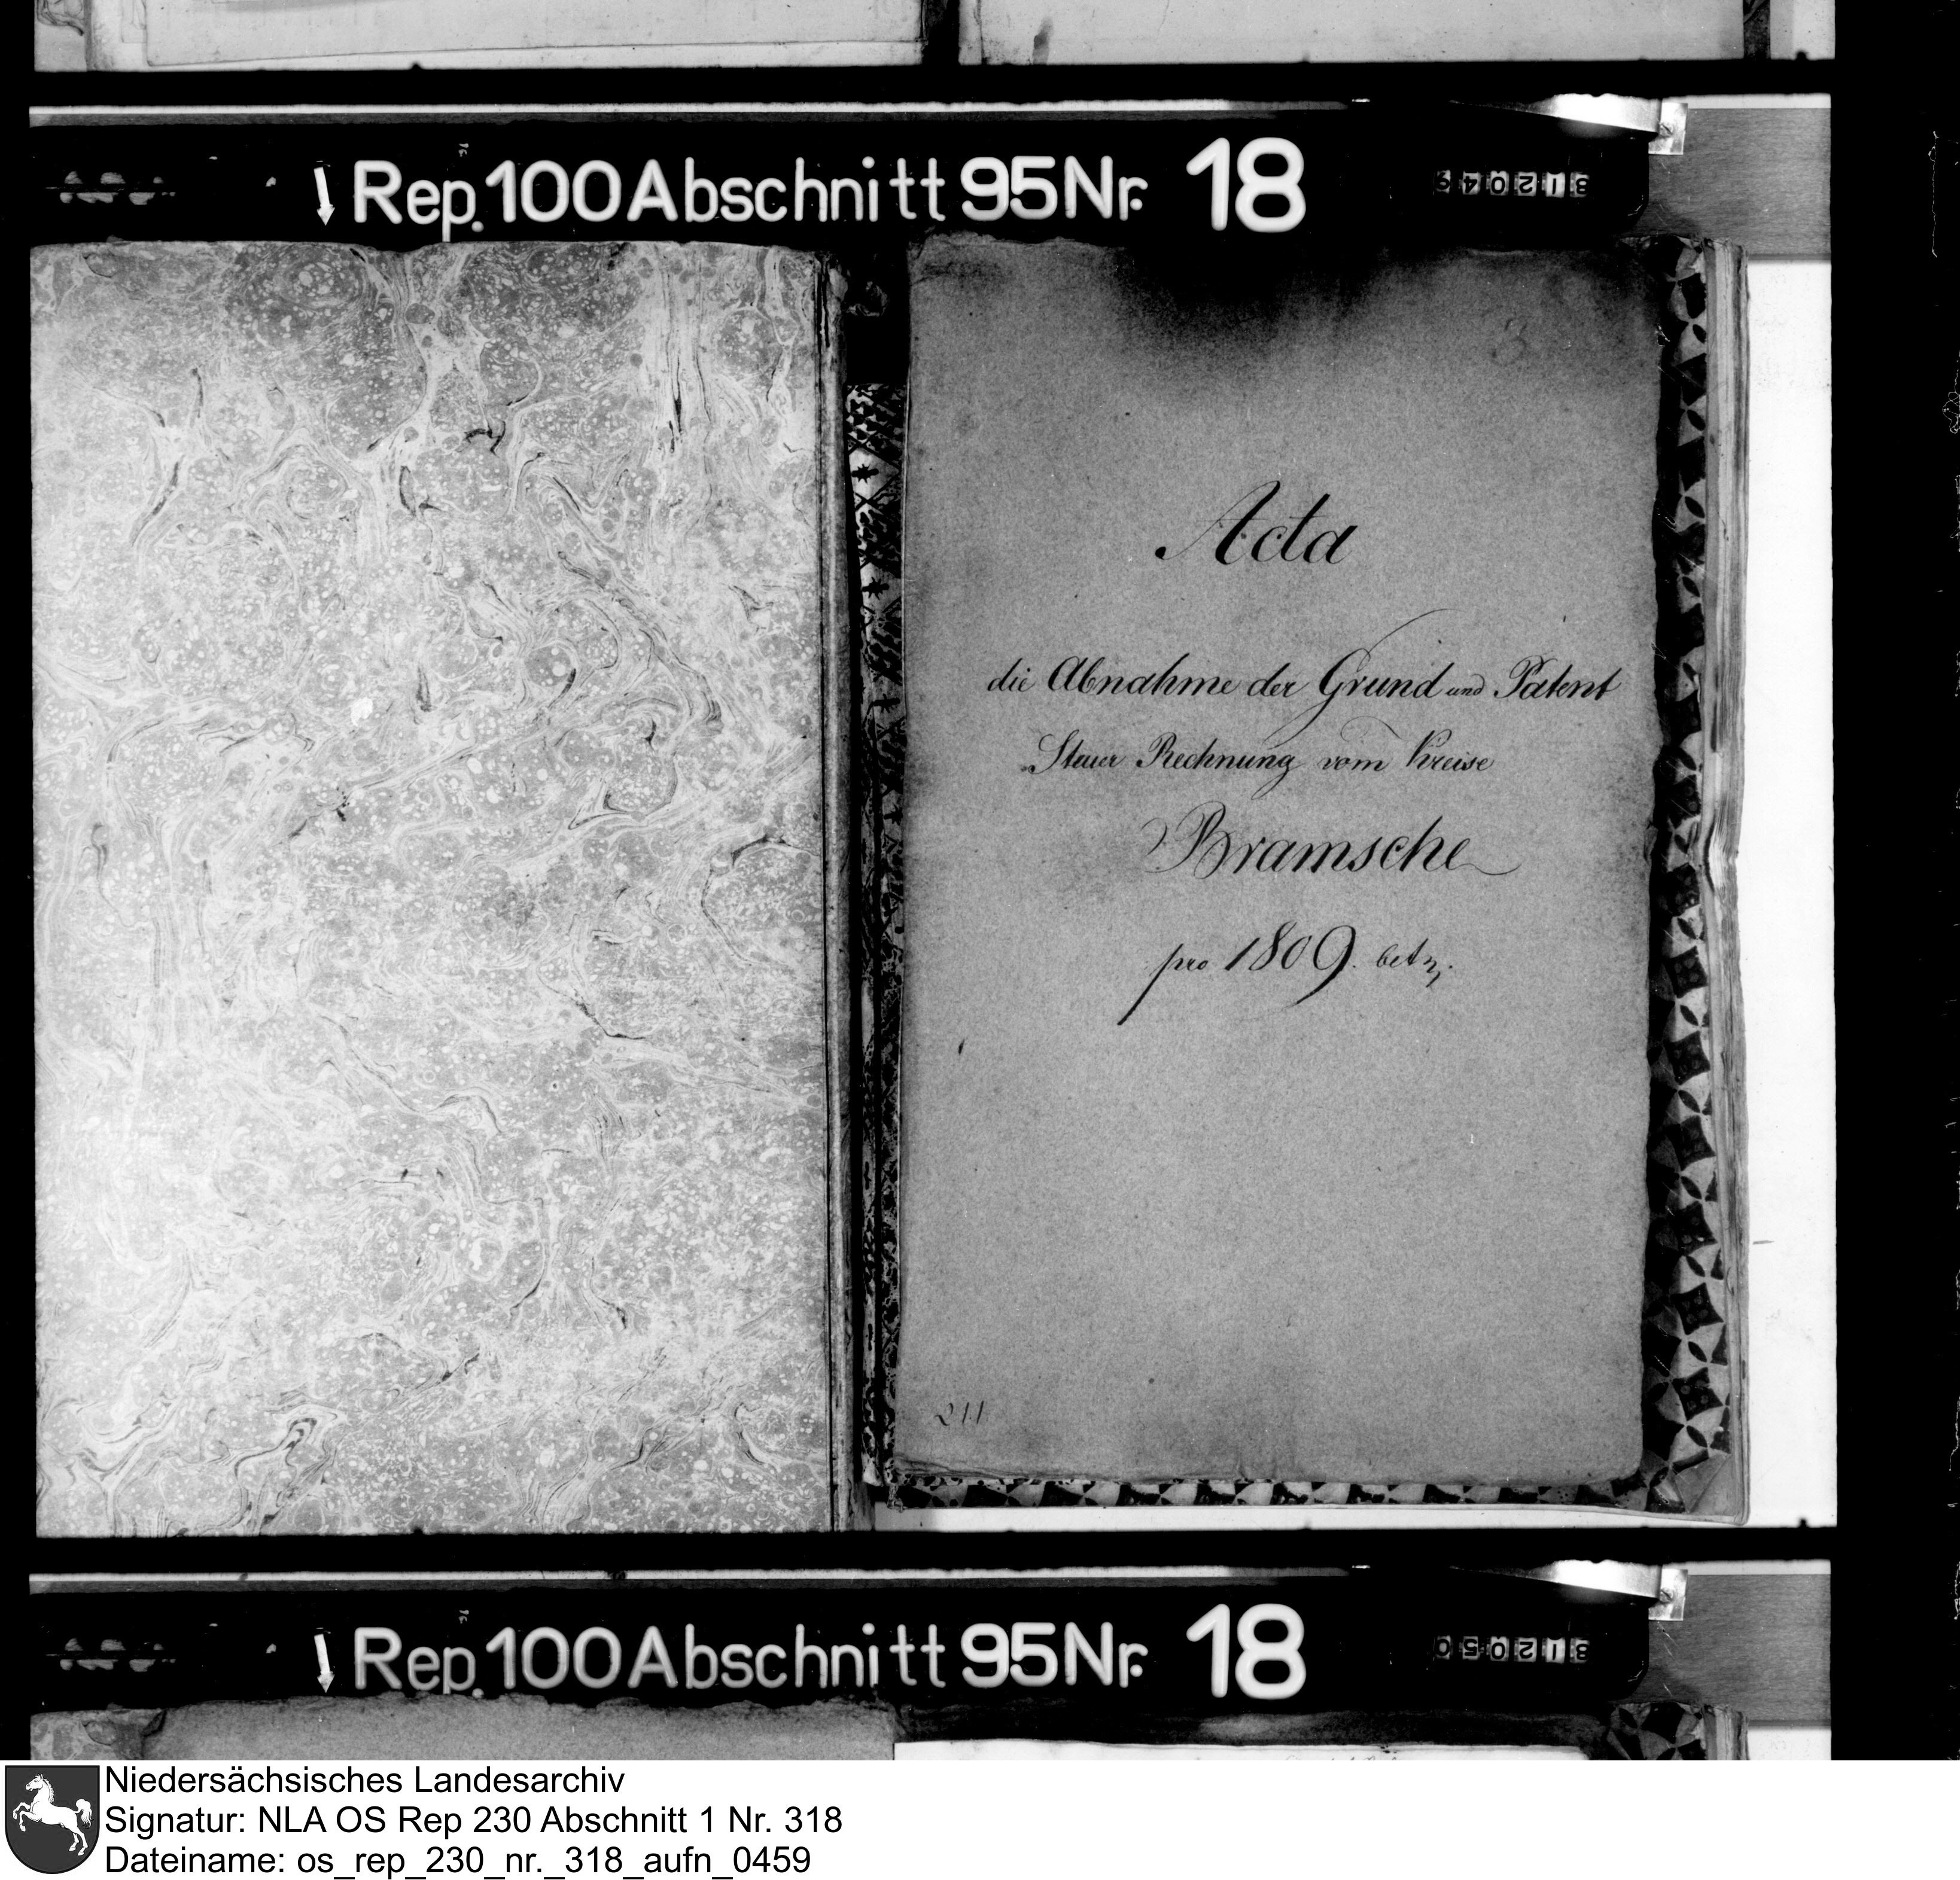 Rep. 100 Abschnitt 95 Nr. 18
312049
3
Acta
die Abnahme der Grund und Patent
Steuer Rechnung vom Kreise
Bramsche
pro 1809. betr.
211
Rep. 100 Abschnitt 95 Nr. 18
312050
Niedersächsisches Landesarchiv
Signatur: NLA OS Rep 230 Abschnitt 1 Nr. 318
Dateiname: os_rep_230_nr._318_aufn_0459